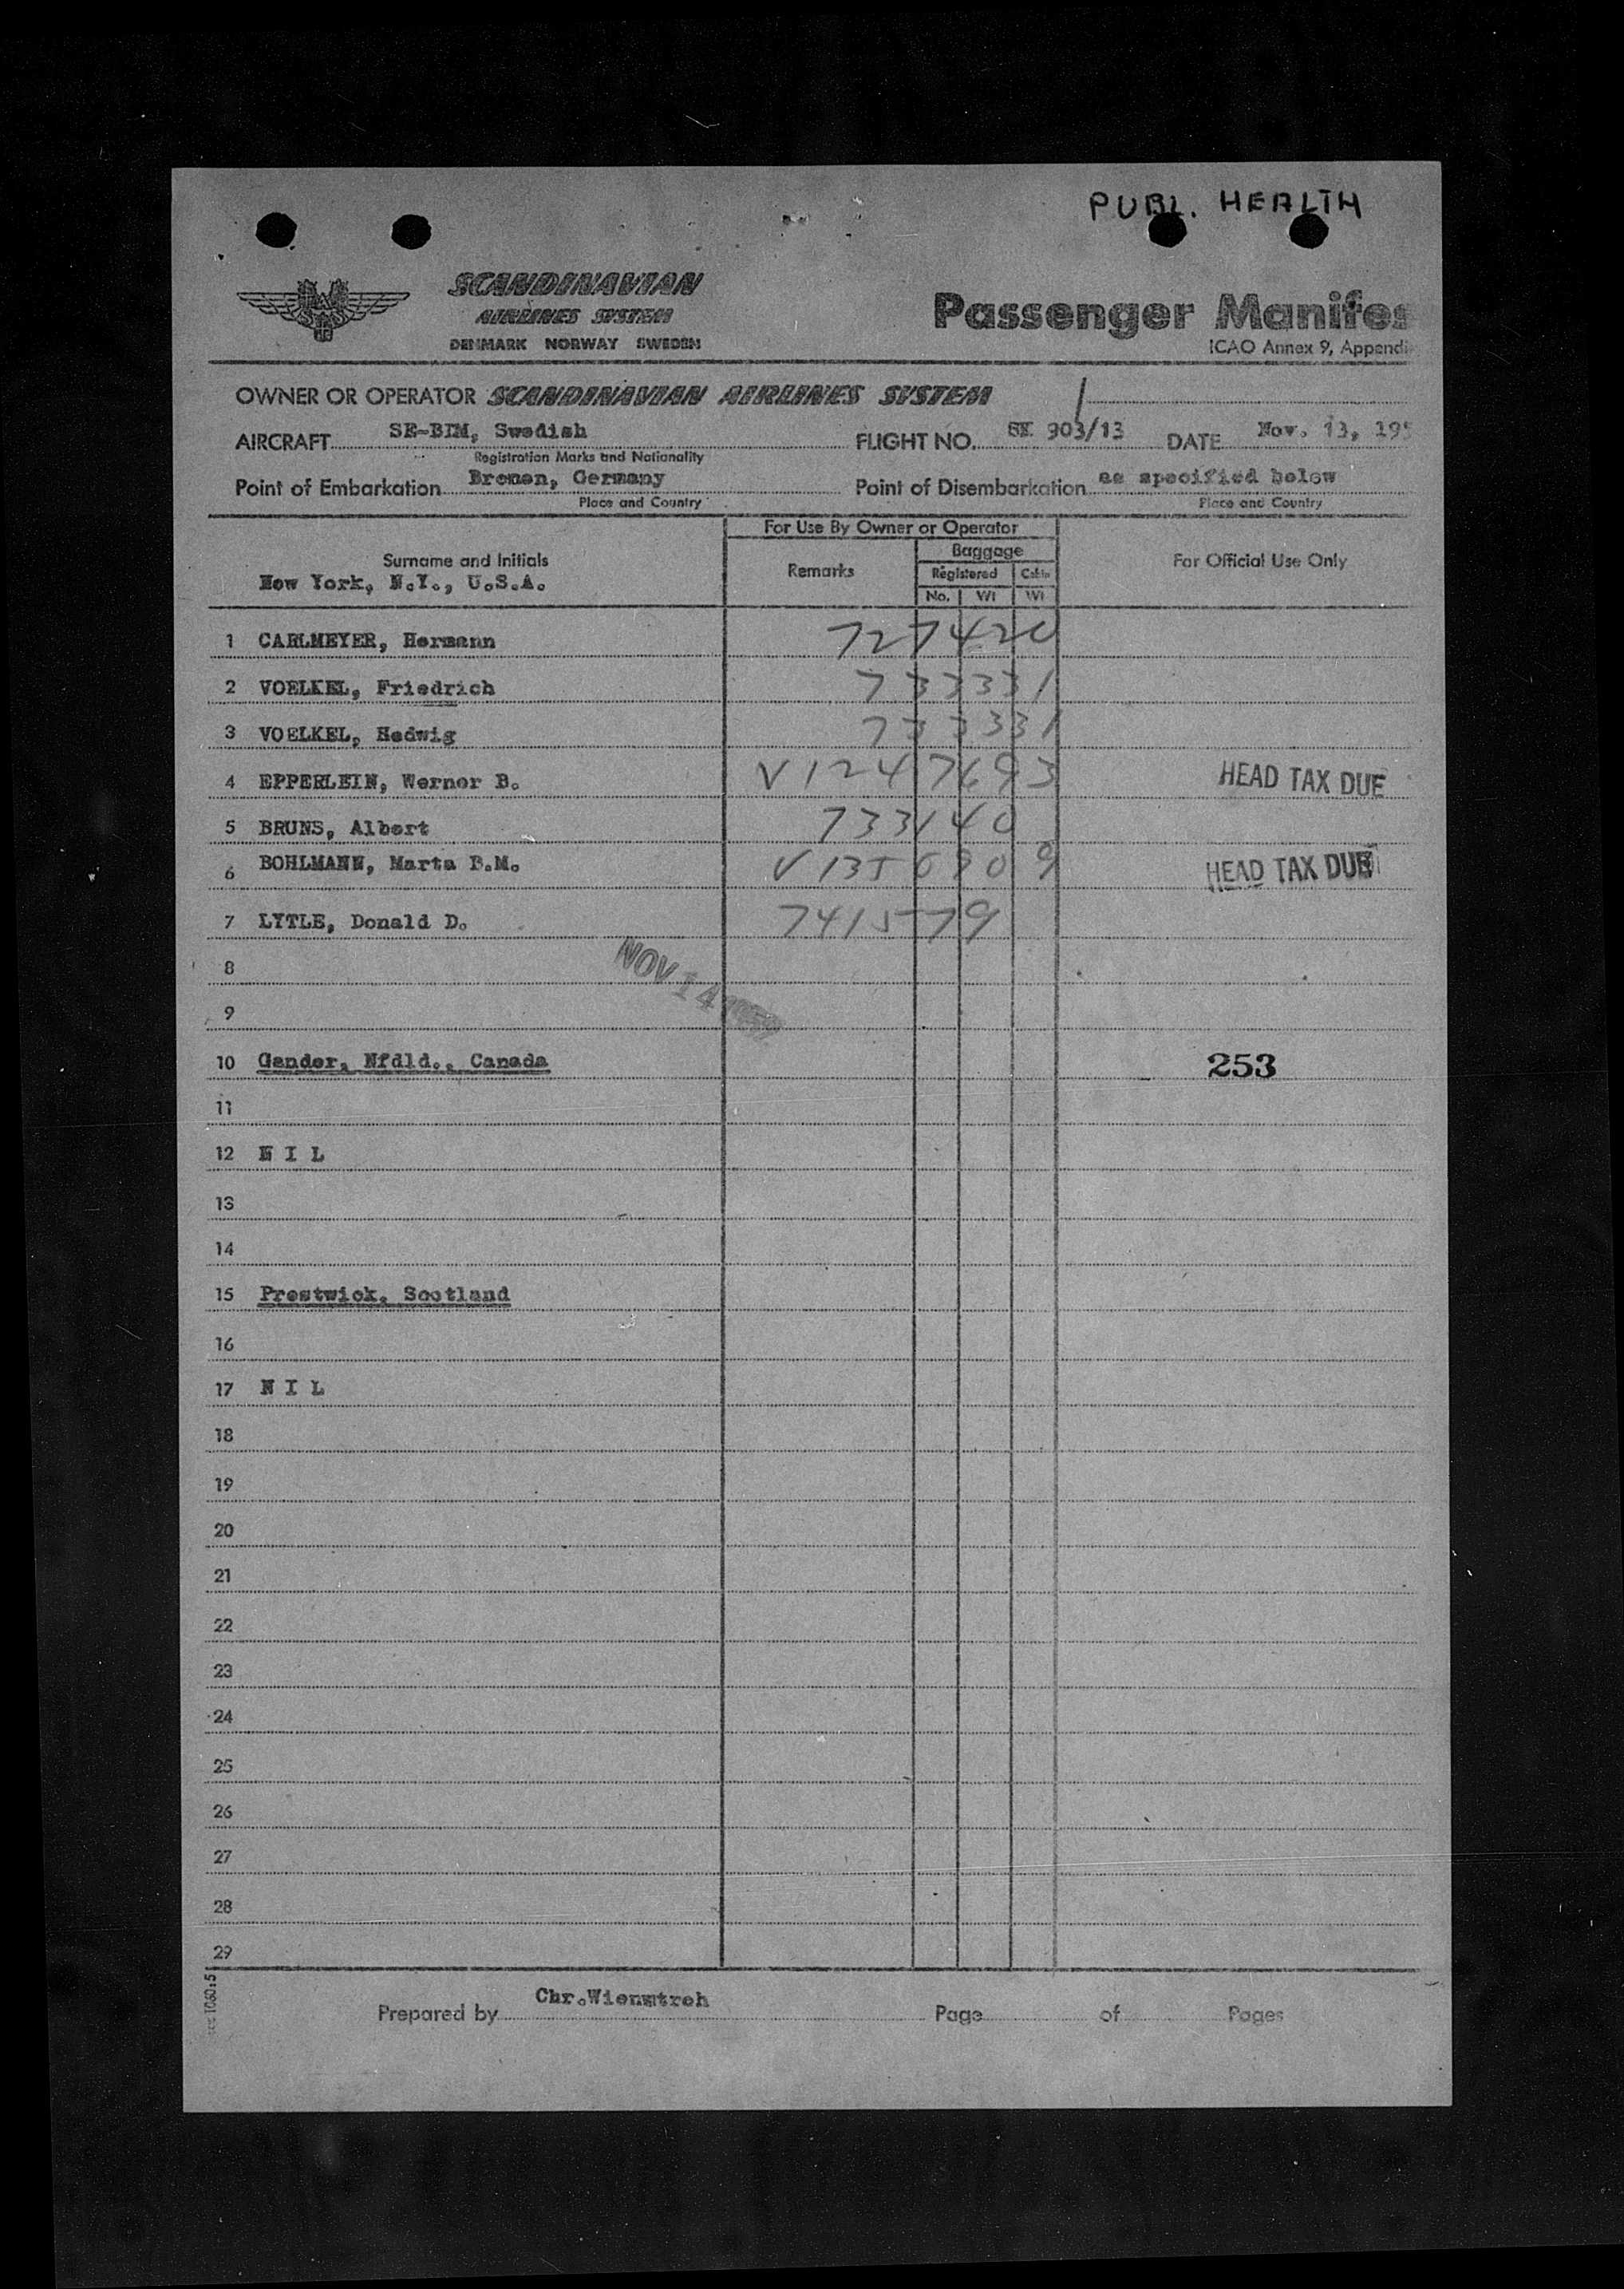 PUBL. HEALTH
SCANDINAVIAN
AIRLINES SYSTEM
DENMARK NORWAY SWEDEN
Passenger Manifes
ICAO Annex 9, Appendi
OWNER OR OPERATOR SCANDINAVIAN AIRLINES SYSTEM
AIRCRAFT SE-BIM, Swedish FLIGHT NO. SK 903/13 DATE Nov. 13, 195
Registration Marks and Nationality
Point of Embarkation Bremen, Germany Point of Disembarkation as specified below
Place and Country Place and Country
For Use By Owner or Operator
Surname and Initials Remarks Baggage For Official Use Only
Registered Cabin
New York, N.Y., U.S.A.
No. Wt Wt
1 CARLMEYER, Hermann 727420
2 VOELKEL, Friedrich 733331
3 VOELKEL, Hedwig 733331
4 EPPERLEIN, Werner B. V1247693 HEAD TAX DUE
5 BRUNS, Albert 733140
6 BOHLMANN, Marta B.M. V135 HEAD TAX DUE
7 LYTLE, Donald D. 741579
8
NOV 14
9
10 Gander, Nfdld., Canada 253
11
12 N I L
13
14
15 Prestwick, Scotland
16
17 N I L
18
19
20
21
22
23
24
25
26
27
28
29
Prepared by Chr. Page of Pages